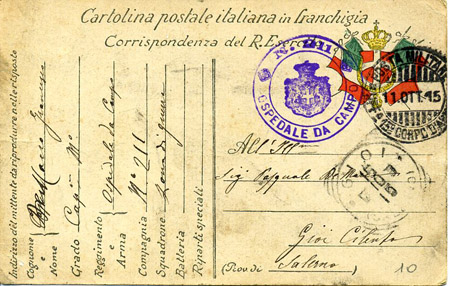 Cartolina postale italiana in franchigia
Corrispondenza del R. Esercito
N. 211
OSPEDALE DA CAMPO
POSTA MILITARE
11.OTT.15
CORPO D'ARMATA
All'
Sig Pasquale
Gioi Cilento
(Prov. di Salerno
10
Indirizzo del mittente da riprodurre nelle risposte
Cognome e Nome
Grado Cap.
Reggimento e Arma Ospedale da Campo
Compagnia N° 211
Squadrone Zona di guerra
Batteria
Riparti speciali